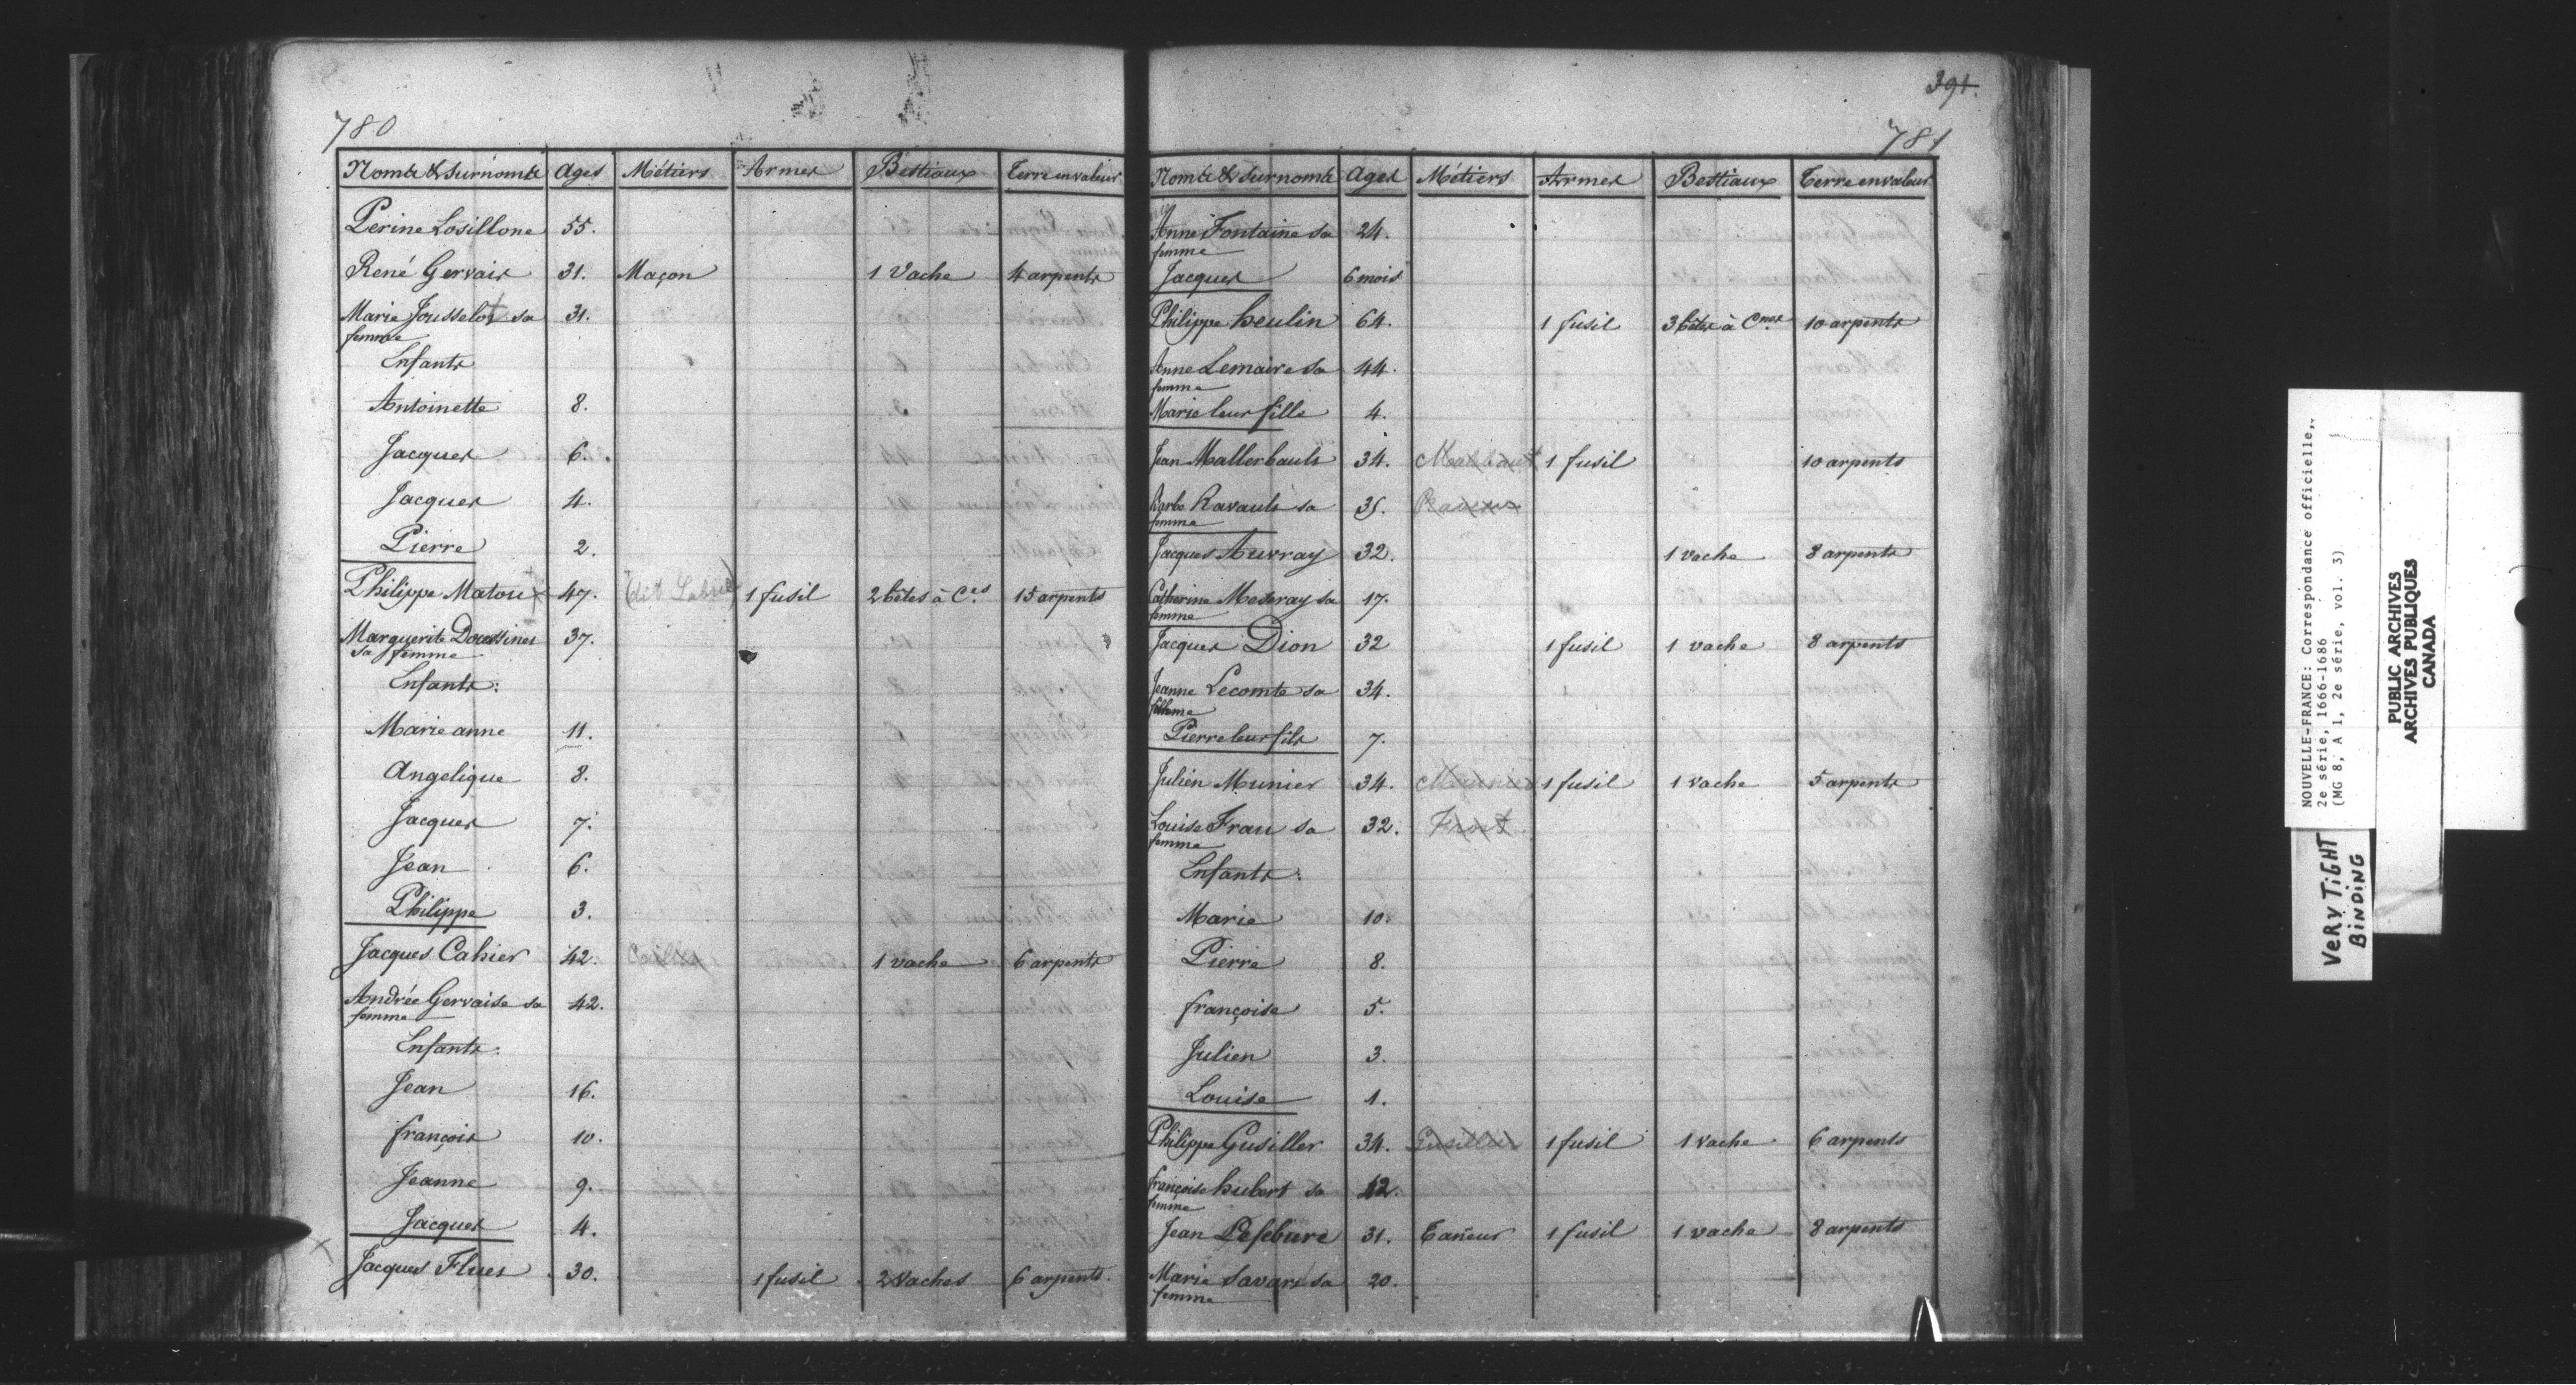 391.
780
Noms & surnoms Ages Métiers Armes Bestiaux Terre en valeur
Perine Losillone 55.
René Gervais 31. Maçon 1 Vache 4 arpents
Marie Jousselot sa 31.
femme
Enfants
Antoinette 8.
Jacques 6.
Jacques 4.
Pierre 2.
Philippe Matou 47. (dit Labrie) 1 fusil 2 bêtes à C.es 15 arpents
Marguerite Doussines 37.
sa femme
Enfants:
Marie anne 11.
Angelique 8.
Jacques 7.
Jean 6.
Philippe 3.
Jacques Cahier 42. 1 vache 6 arpents
Andrée Gervaise sa 42.
femme
Enfants:
Jean 16.
françois 10.
Jeanne 9.
Jacques 4.
Jacques Flues 30. 1 fusil 2 Vaches 6 arpents.
781
Noms & surnoms Ages Métiers Armes Bestiaux Terre en valeur
Anne Fontaine sa 24.
femme
Jacques 6 mois
Philippe heulin 64. 1 fusil 3 bêtes à C.nes 10 arpents
Anne Lemaire sa 44.
femme
Marie leur fille 4.
Jean Mallerbault 34. 1 fusil 10 arpents
Barbe Ravault sa 35.
femme
Jacques Auvray 32. 1 vache 8 arpents
Catherine Meseray sa 17.
femme
Jacques Dion 32 1 fusil 1 vache 8 arpents
Jeanne Lecomte sa 34.
femme
Pierre leur fils 7.
Julien Munier 34. Meunier 1 fusil 1 vache 5 arpents
Louise Frau sa 32. Frost
femme
Enfants:
Marie 10.
Pierre 8.
françoise 5.
Julien 3.
Louise 1.
Philippe Gusiller 34. 1 fusil 1 vache 6 arpents
françoise hubert sa 42.
femme
Jean Lefebure 31. Tañeur 1 fusil 1 vache 8 arpents
Marie Savari sa 20.
femme
NOUVELLE-FRANCE: Correspondance officielle,
2e série, 1666-1686
(MG 8, A 1, 2e série, vol. 3)
PUBLIC ARCHIVES
ARCHIVES PUBLIQUES
CANADA
VERY TIGHT
BINDING